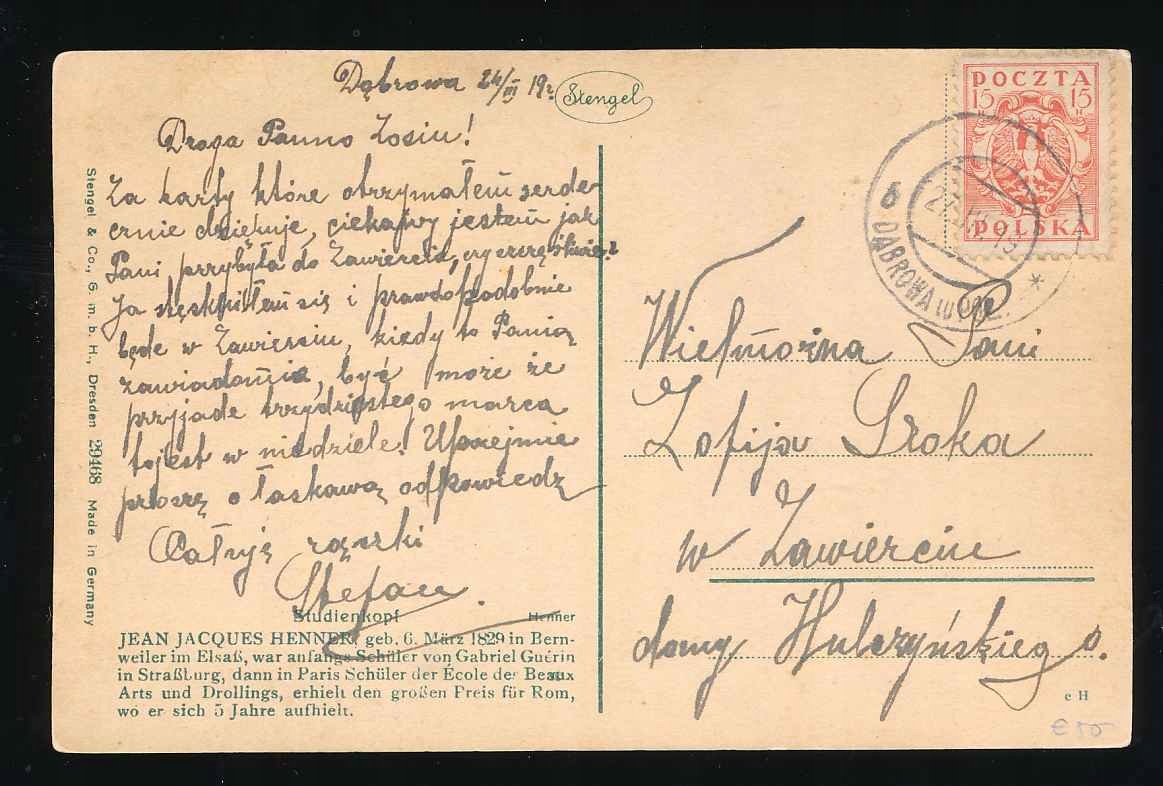 Dąbrowa 24/III 19r.
Stengel
Droga Panno Zosiu!
Za karty które otrzymałem serde-
cznie dziękuje, ciekawy jestem jak
Pani przybyła do Zawiercia, czy szczęśliwie?
Ja stęskniłem się i prawdopodobnie
będe w Zawierciu, kiedy to Panią
zawiadomię, być może że
przyjade trzydziestego marca
tojest w niedziele! Uprzejmie
proszę o łaskawą odpowiedź
Całuję rączki
Stefan
Studienkopf Henner
JEAN JACQUES HENNER, geb. 6. März 1829 in Bern-
weiler im Elsaß, war anfangs Schüler von Gabriel Guérin
in Straßburg, dann in Paris Schüler der École des Beaux
Arts und Drollings, erhielt den großen Preis für Rom,
wo er sich 5 Jahre aufhielt.
Stengel & Co., G. m. b. H., Dresden 29468 Made in Germany
POCZTA
15 15
H H
POLSKA
b DĄBROWA *
Wielmożna Pani
Zofija Sroka
w Zawierciu
domy Hulczyńskiego.
c H
€50